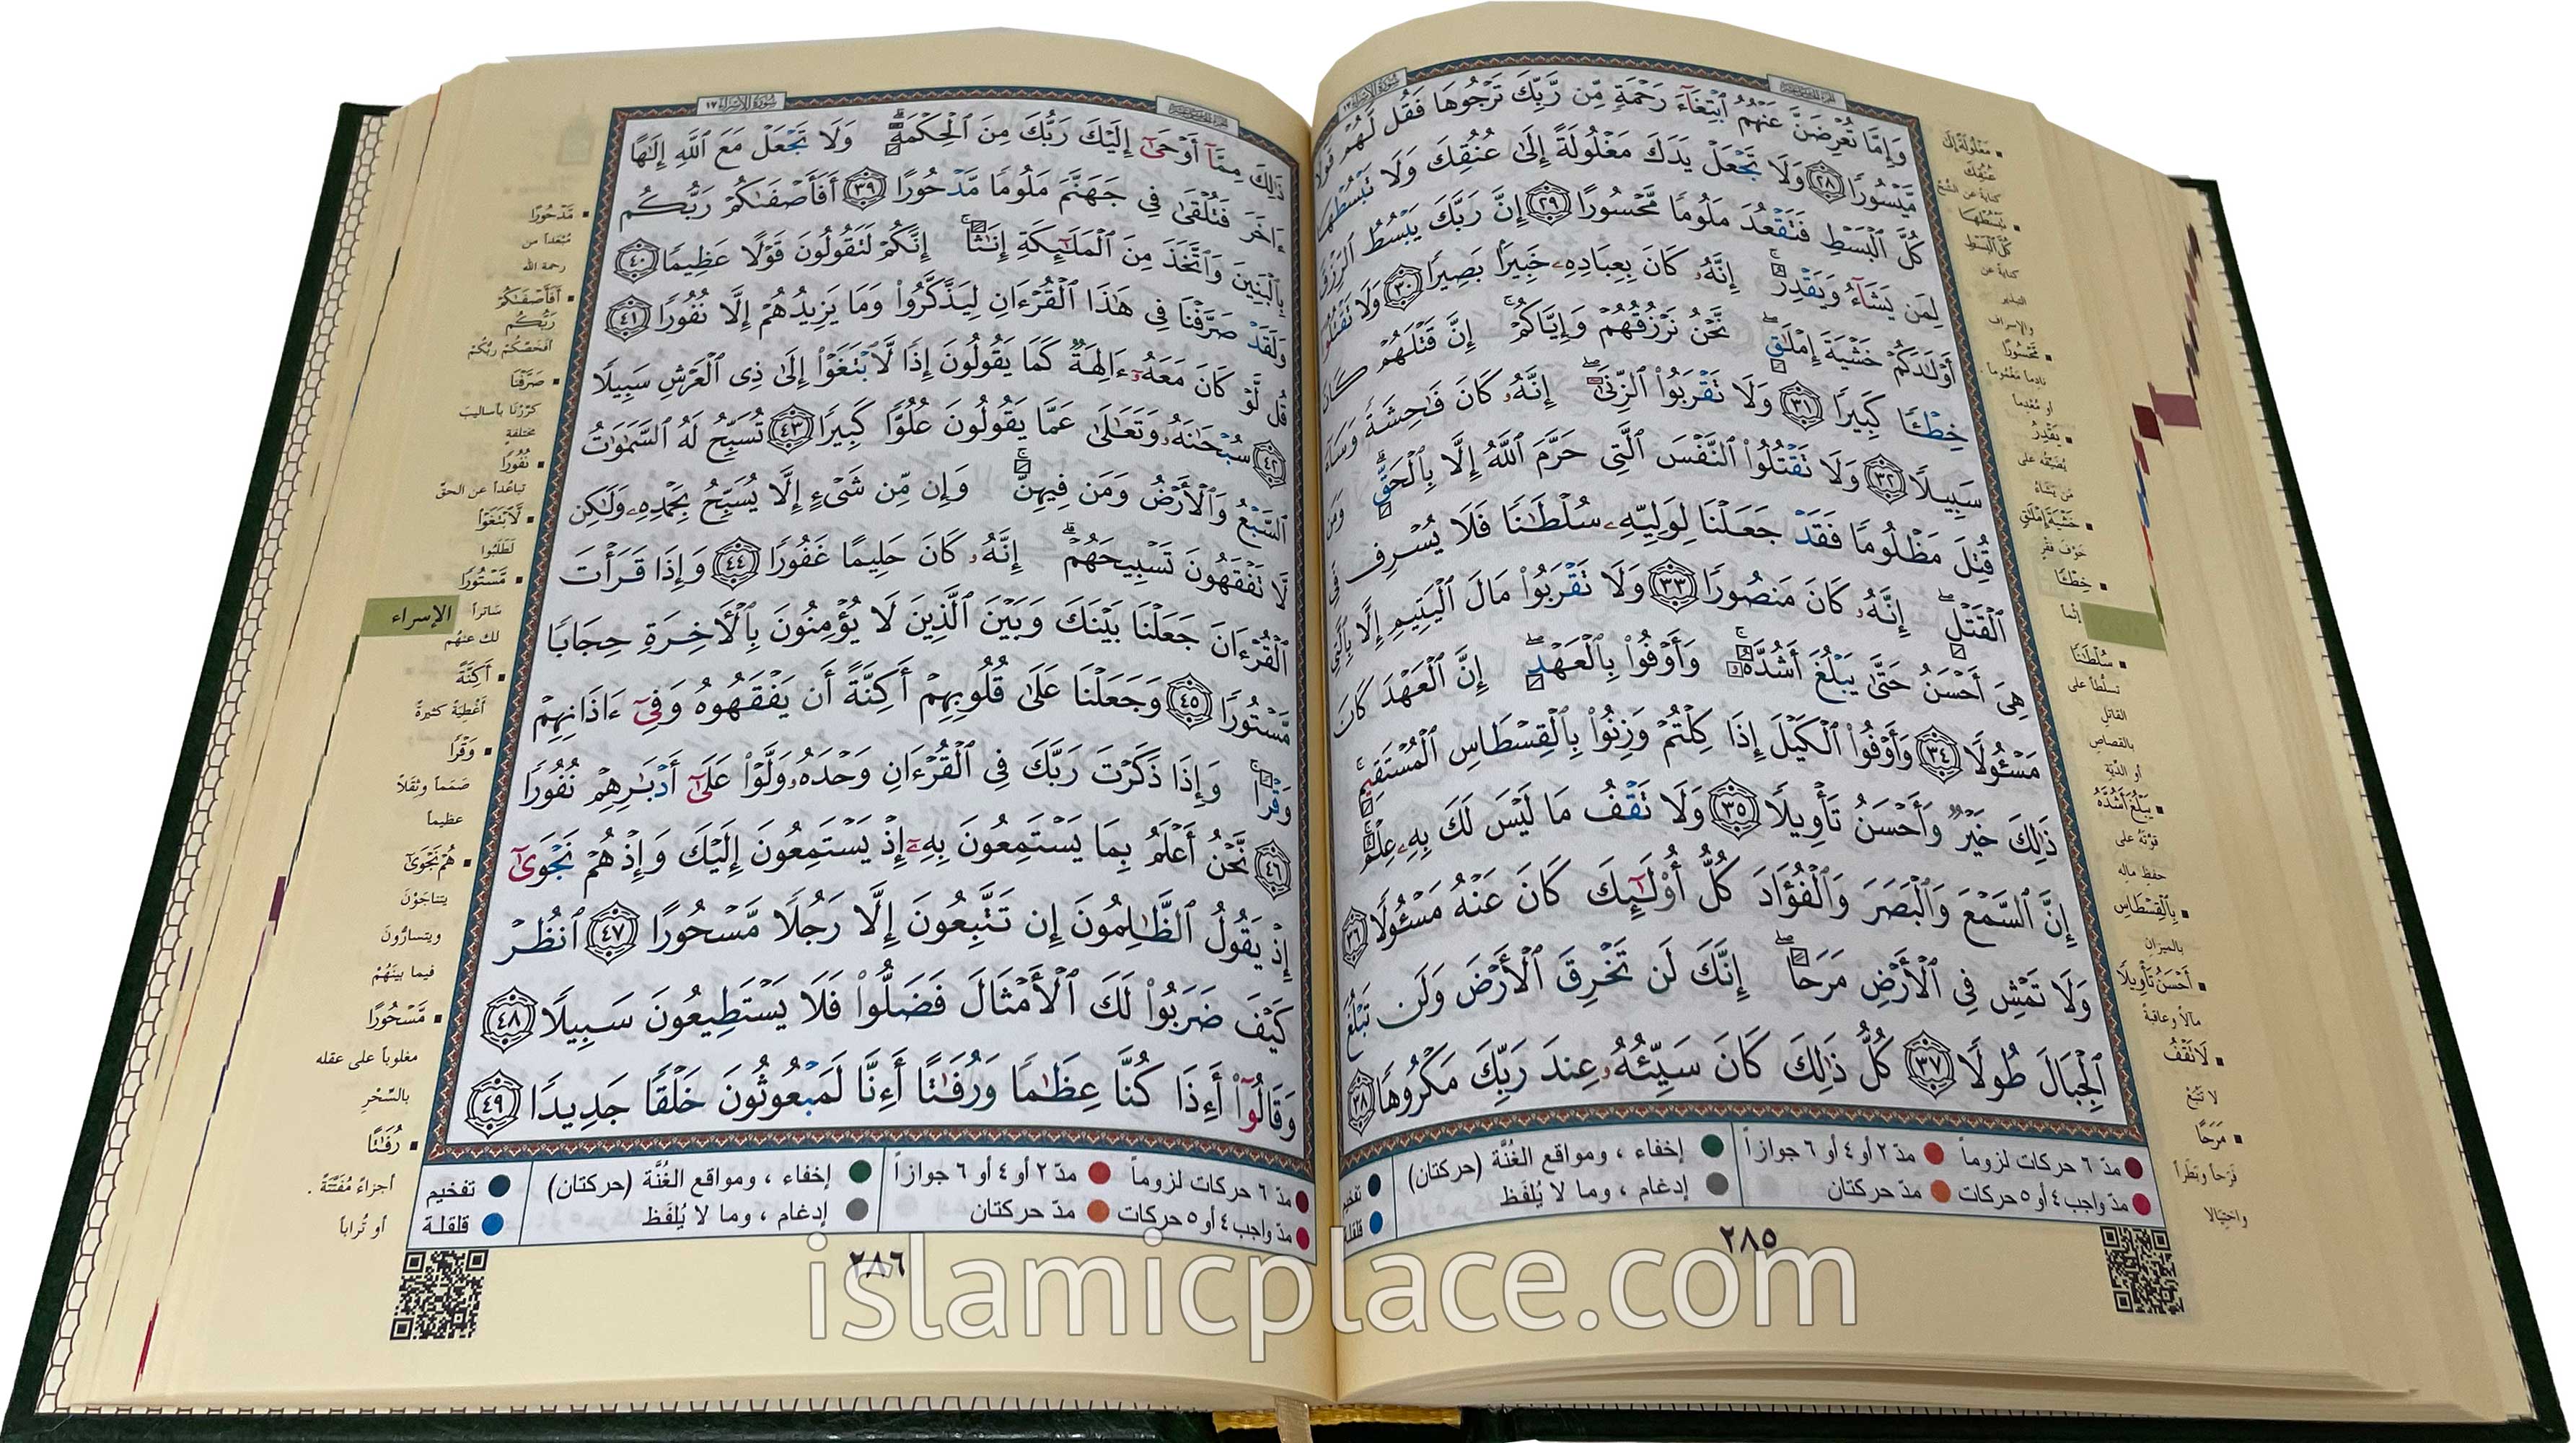 سُورَةُ الإِسْرَاءِ ١٧
وَإِمَّا تُعْرِضَنَّ عَنْهُمُ ٱبْتِغَآءَ رَحْمَةٍ مِّن رَّبِّكَ تَرْجُوهَا فَقُل لَّهُمْ قَوْلًا
مَّيْسُورًا ٢٨ وَلَا تَجْعَلْ يَدَكَ مَغْلُولَةً إِلَىٰ عُنُقِكَ وَلَا تَبْسُطْهَا
كُلَّ ٱلْبَسْطِ فَتَقْعُدَ مَلُومًا مَّحْسُورًا ٢٩ إِنَّ رَبَّكَ يَبْسُطُ ٱلرِّزْقَ
لِمَن يَشَآءُ وَيَقْدِرُ ۚ إِنَّهُۥ كَانَ بِعِبَادِهِۦ خَبِيرًۢا بَصِيرًا ٣٠ وَلَا تَقْتُلُوٓا۟
أَوْلَٰدَكُمْ خَشْيَةَ إِمْلَٰقٍ ۖ نَّحْنُ نَرْزُقُهُمْ وَإِيَّاكُمْ ۚ إِنَّ قَتْلَهُمْ كَانَ
خِطْـًٔا كَبِيرًا ٣١ وَلَا تَقْرَبُوا۟ ٱلزِّنَىٰٓ ۖ إِنَّهُۥ كَانَ فَٰحِشَةً وَسَآءَ
سَبِيلًا ٣٢ وَلَا تَقْتُلُوا۟ ٱلنَّفْسَ ٱلَّتِى حَرَّمَ ٱللَّهُ إِلَّا بِٱلْحَقِّ ۗ وَمَن
قُتِلَ مَظْلُومًا فَقَدْ جَعَلْنَا لِوَلِيِّهِۦ سُلْطَٰنًا فَلَا يُسْرِف فِّى
ٱلْقَتْلِ ۖ إِنَّهُۥ كَانَ مَنصُورًا ٣٣ وَلَا تَقْرَبُوا۟ مَالَ ٱلْيَتِيمِ إِلَّا بِٱلَّتِى
هِىَ أَحْسَنُ حَتَّىٰ يَبْلُغَ أَشُدَّهُۥ ۚ وَأَوْفُوا۟ بِٱلْعَهْدِ ۖ إِنَّ ٱلْعَهْدَ كَانَ
مَسْـُٔولًا ٣٤ وَأَوْفُوا۟ ٱلْكَيْلَ إِذَا كِلْتُمْ وَزِنُوا۟ بِٱلْقِسْطَاسِ ٱلْمُسْتَقِيمِ ۚ
ذَٰلِكَ خَيْرٌ وَأَحْسَنُ تَأْوِيلًا ٣٥ وَلَا تَقْفُ مَا لَيْسَ لَكَ بِهِۦ عِلْمٌ ۚ
إِنَّ ٱلسَّمْعَ وَٱلْبَصَرَ وَٱلْفُؤَادَ كُلُّ أُو۟لَٰٓئِكَ كَانَ عَنْهُ مَسْـُٔولًا ٣٦
وَلَا تَمْشِ فِى ٱلْأَرْضِ مَرَحًا ۖ إِنَّكَ لَن تَخْرِقَ ٱلْأَرْضَ وَلَن تَبْلُغَ
ٱلْجِبَالَ طُولًا ٣٧ كُلُّ ذَٰلِكَ كَانَ سَيِّئُهُۥ عِندَ رَبِّكَ مَكْرُوهًا ٣٨
كنايةً عن الشُّحّ
كُلَّ ٱلْبَسْطِ
كنايةً عن
التبذير
والإسراف
مَحْسُورًا
نادماً مغموماً
أو مُعْدِماً
يَقْدِرُ
يُضَيِّقُه على
مَن يَشاءُ
خَشْيَةَ إِمْلَٰقٍ
خَوْفَ فَقْرٍ
خِطْـًٔا
إثماً
سُلْطَٰنًا
تسلُّطاً على
القاتلِ
بالقصاصِ
أو الدِّيَةِ
يَبْلُغَ أَشُدَّهُ
قوَّتَهُ على
حفظِ مالِه
بِٱلْقِسْطَاسِ
بالميزانِ
أَحْسَنُ تَأْوِيلًا
مآلاً وعاقبةً
لَا تَقْفُ
لا تَتَّبِعْ
مَرَحًا
فَرَحاً وبَطَراً
واختِيالا
مدّ ٦ حركات لزوماً
مدّ ٢ أو ٤ أو ٦ جوازاً
إخفاء ، ومواقع الغُنَّة (حركتان)
تفخيم
مدّ واجب ٤ أو ٥ حركات
مدّ حركتان
إدغام ، وما لا يُلفَظ
قلقلة
٢٨٥
سُورَةُ الإِسْرَاءِ ١٧
ذَٰلِكَ مِمَّآ أَوْحَىٰٓ إِلَيْكَ رَبُّكَ مِنَ ٱلْحِكْمَةِ ۗ وَلَا تَجْعَلْ مَعَ ٱللَّهِ إِلَٰهًا
ءَاخَرَ فَتُلْقَىٰ فِى جَهَنَّمَ مَلُومًا مَّدْحُورًا ٣٩ أَفَأَصْفَىٰكُمْ رَبُّكُم
بِٱلْبَنِينَ وَٱتَّخَذَ مِنَ ٱلْمَلَٰٓئِكَةِ إِنَٰثًا ۚ إِنَّكُمْ لَتَقُولُونَ قَوْلًا عَظِيمًا ٤٠
وَلَقَدْ صَرَّفْنَا فِى هَٰذَا ٱلْقُرْءَانِ لِيَذَّكَّرُوا۟ وَمَا يَزِيدُهُمْ إِلَّا نُفُورًا ٤١
قُل لَّوْ كَانَ مَعَهُۥٓ ءَالِهَةٌ كَمَا يَقُولُونَ إِذًا لَّٱبْتَغَوْا۟ إِلَىٰ ذِى ٱلْعَرْشِ سَبِيلًا
٤٢ سُبْحَٰنَهُۥ وَتَعَٰلَىٰ عَمَّا يَقُولُونَ عُلُوًّا كَبِيرًا ٤٣ تُسَبِّحُ لَهُ ٱلسَّمَٰوَٰتُ
ٱلسَّبْعُ وَٱلْأَرْضُ وَمَن فِيهِنَّ ۚ وَإِن مِّن شَىْءٍ إِلَّا يُسَبِّحُ بِحَمْدِهِۦ وَلَٰكِن
لَّا تَفْقَهُونَ تَسْبِيحَهُمْ ۗ إِنَّهُۥ كَانَ حَلِيمًا غَفُورًا ٤٤ وَإِذَا قَرَأْتَ
ٱلْقُرْءَانَ جَعَلْنَا بَيْنَكَ وَبَيْنَ ٱلَّذِينَ لَا يُؤْمِنُونَ بِٱلْأَخِرَةِ حِجَابًا
مَّسْتُورًا ٤٥ وَجَعَلْنَا عَلَىٰ قُلُوبِهِمْ أَكِنَّةً أَن يَفْقَهُوهُ وَفِىٓ ءَاذَانِهِمْ
وَقْرًا ۚ وَإِذَا ذَكَرْتَ رَبَّكَ فِى ٱلْقُرْءَانِ وَحْدَهُۥ وَلَّوْا۟ عَلَىٰٓ أَدْبَٰرِهِمْ نُفُورًا
٤٦ نَّحْنُ أَعْلَمُ بِمَا يَسْتَمِعُونَ بِهِۦٓ إِذْ يَسْتَمِعُونَ إِلَيْكَ وَإِذْ هُمْ نَجْوَىٰٓ
إِذْ يَقُولُ ٱلظَّٰلِمُونَ إِن تَتَّبِعُونَ إِلَّا رَجُلًا مَّسْحُورًا ٤٧ ٱنظُرْ
كَيْفَ ضَرَبُوا۟ لَكَ ٱلْأَمْثَالَ فَضَلُّوا۟ فَلَا يَسْتَطِيعُونَ سَبِيلًا ٤٨
وَقَالُوٓا۟ أَءِذَا كُنَّا عِظَٰمًا وَرُفَٰتًا أَءِنَّا لَمَبْعُوثُونَ خَلْقًا جَدِيدًا ٤٩
مَّدْحُورًا
مُبْعَداً من
رحمة الله
أَفَأَصْفَىٰكُمْ
رَبُّكُم
أفَخَصَّكُمْ ربُّكُمْ
صَرَّفْنَا
كرَّرْنَا بأساليبَ
مختلفةٍ
نُفُورًا
تباعُداً عن الحقّ
لَّٱبْتَغَوْا۟
لَطَلَبُوا
مَّسْتُورًا
ساتراً
لك عنهُم
أَكِنَّةً
أغْطِيَةً كثيرةً
وَقْرًا
صَمَماً وثِقَلاً
عظيماً
هُمْ نَجْوَىٰٓ
يتناجَوْنَ
ويتسارُّونَ
فيما بينَهُمْ
مَّسْحُورًا
مغلوباً على عقله
بالسِّحْرِ
رُفَٰتًا
أجزاءً مُفَتَّتَةً .
أو تُراباً
الإسراء
مدّ ٦ حركات لزوماً
مدّ ٢ أو ٤ أو ٦ جوازاً
إخفاء ، ومواقع الغُنَّة (حركتان)
تفخيم
مدّ واجب ٤ أو ٥ حركات
مدّ حركتان
إدغام ، وما لا يُلفَظ
قلقلة
٢٨٦
islamicplace.com